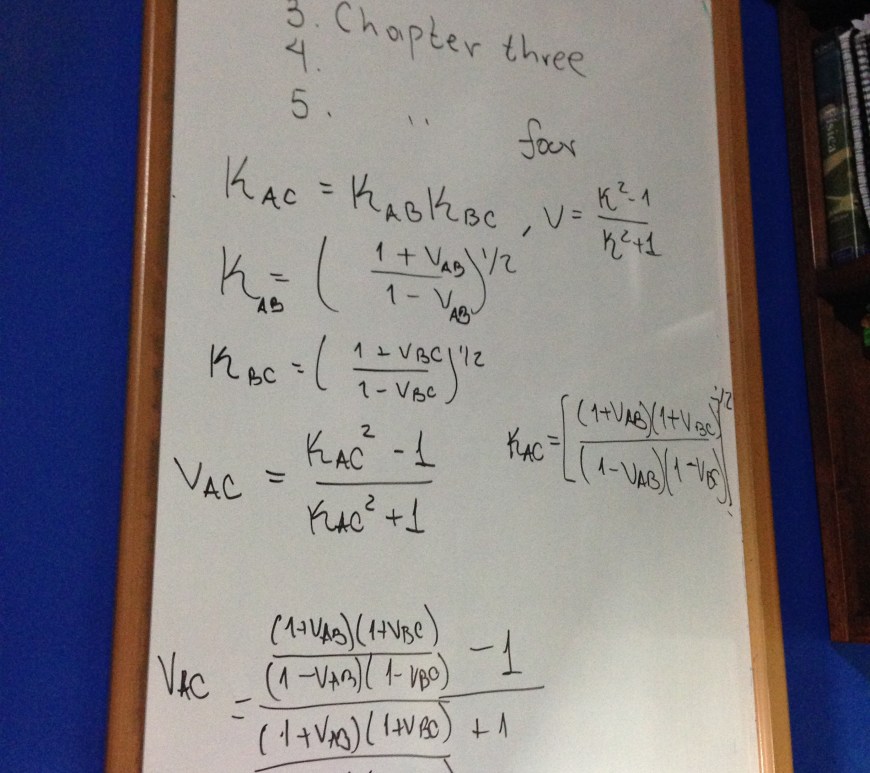 3. Chapter three
4.
5. " four
K_AC = K_AB K_BC , V = (K²-1)/(K²+1)
K_AB = ((1 + V_AB)/(1 - V_AB))^1/2
K_BC = ((1 + V_BC)/(1 - V_BC))^1/2
K_AC = [((1+V_AB)(1+V_BC))/((1-V_AB)(1-V_BC))]^1/2
V_AC = (K_AC² - 1)/(K_AC² + 1)
V_AC = (((1+V_AB)(1+V_BC))/((1-V_AB)(1-V_BC)) - 1)/((1+V_AB)(1+V_BC) + 1
Física